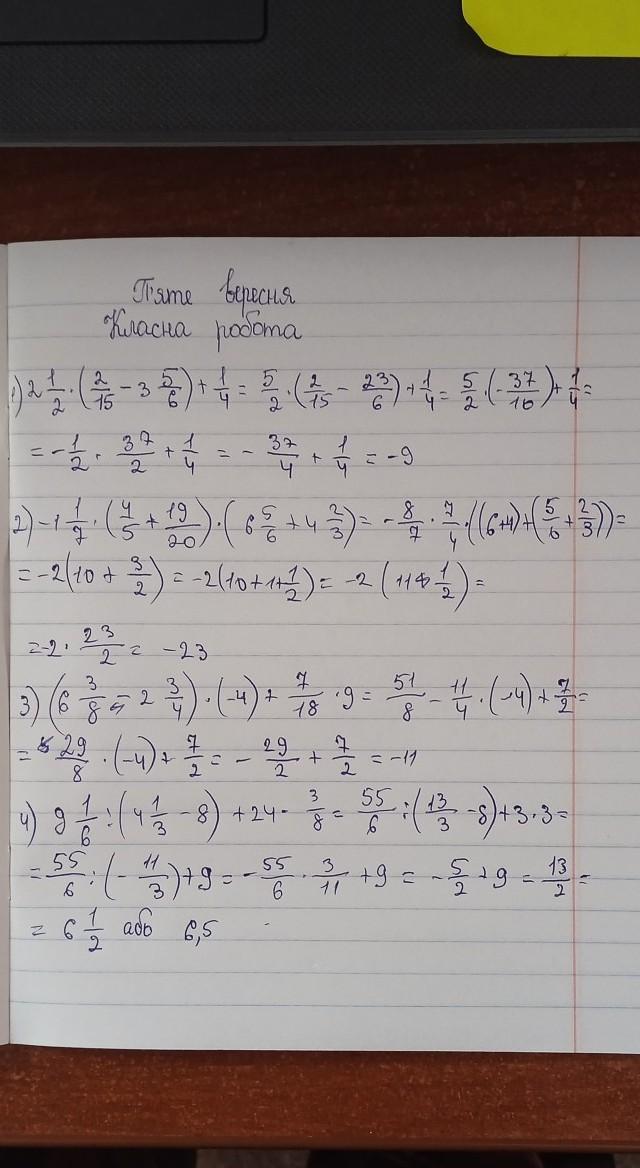 П'яте вересня
Класна робота
1) 2 1/2 · (2/15 - 3 5/6) + 1/4 = 5/2 · (2/15 - 23/6) + 1/4 = 5/2 · (-37/10) + 1/4 =
= -1/2 · 37/2 + 1/4 = - 37/4 + 1/4 = -9
2) -1 1/7 · (4/5 + 19/20) · (6 5/6 + 4 2/3) = - 8/7 · 7/4 · ((6+4) + (5/6 + 2/3)) =
= -2(10 + 3/2) = -2(10 + 1 + 1/2) = -2 (11 1/2) =
= -2 · 23/2 = -23
3) (6 3/8 - 2 3/4) · (-4) + 7/18 · 9 = 51/8 - 11/4 · (-4) + 7/2 =
= 29/8 · (-4) + 7/2 = - 29/2 + 7/2 = -11
4) 9 1/6 : (4 1/3 - 8) + 24 · 3/8 = 55/6 : (13/3 - 8) + 3 · 3 =
= 55/6 : (- 11/3) + 9 = - 55/6 · 3/11 + 9 = - 5/2 + 9 = 13/2 =
= 6 1/2 або 6,5